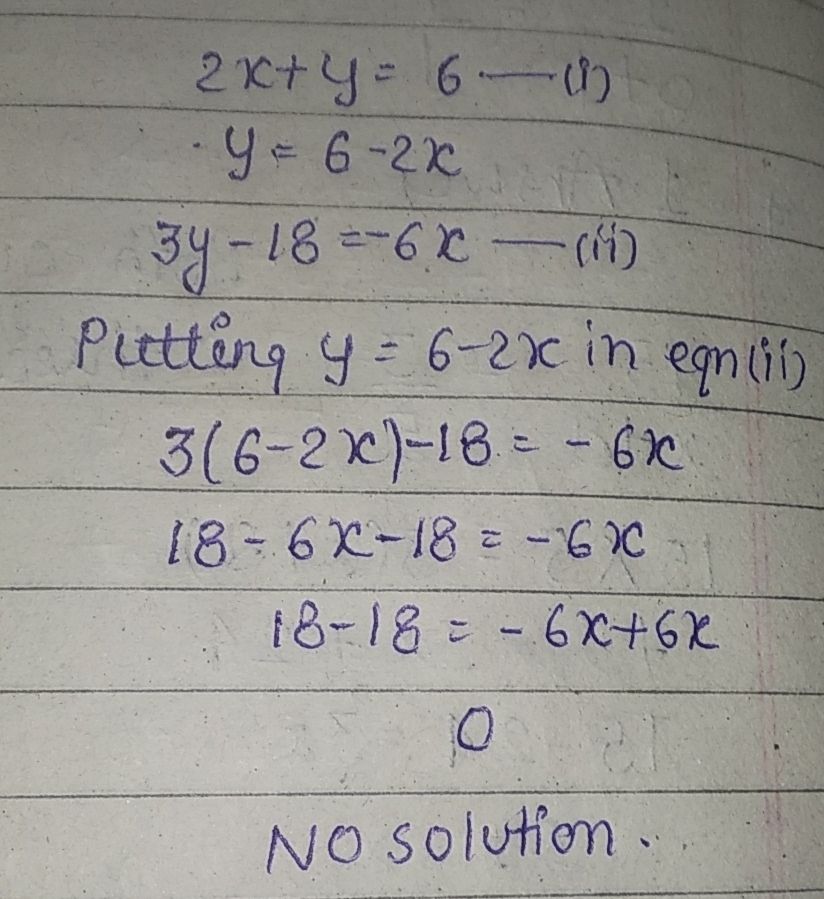 2x+y = 6 — (i)
y = 6-2x
3y-18 =-6x — (ii)
Putting y = 6-2x in eqn(ii)
3(6-2x)-18 = - 6x
18-6x-18 = -6x
18-18 = - 6x+6x
0
NO solution.